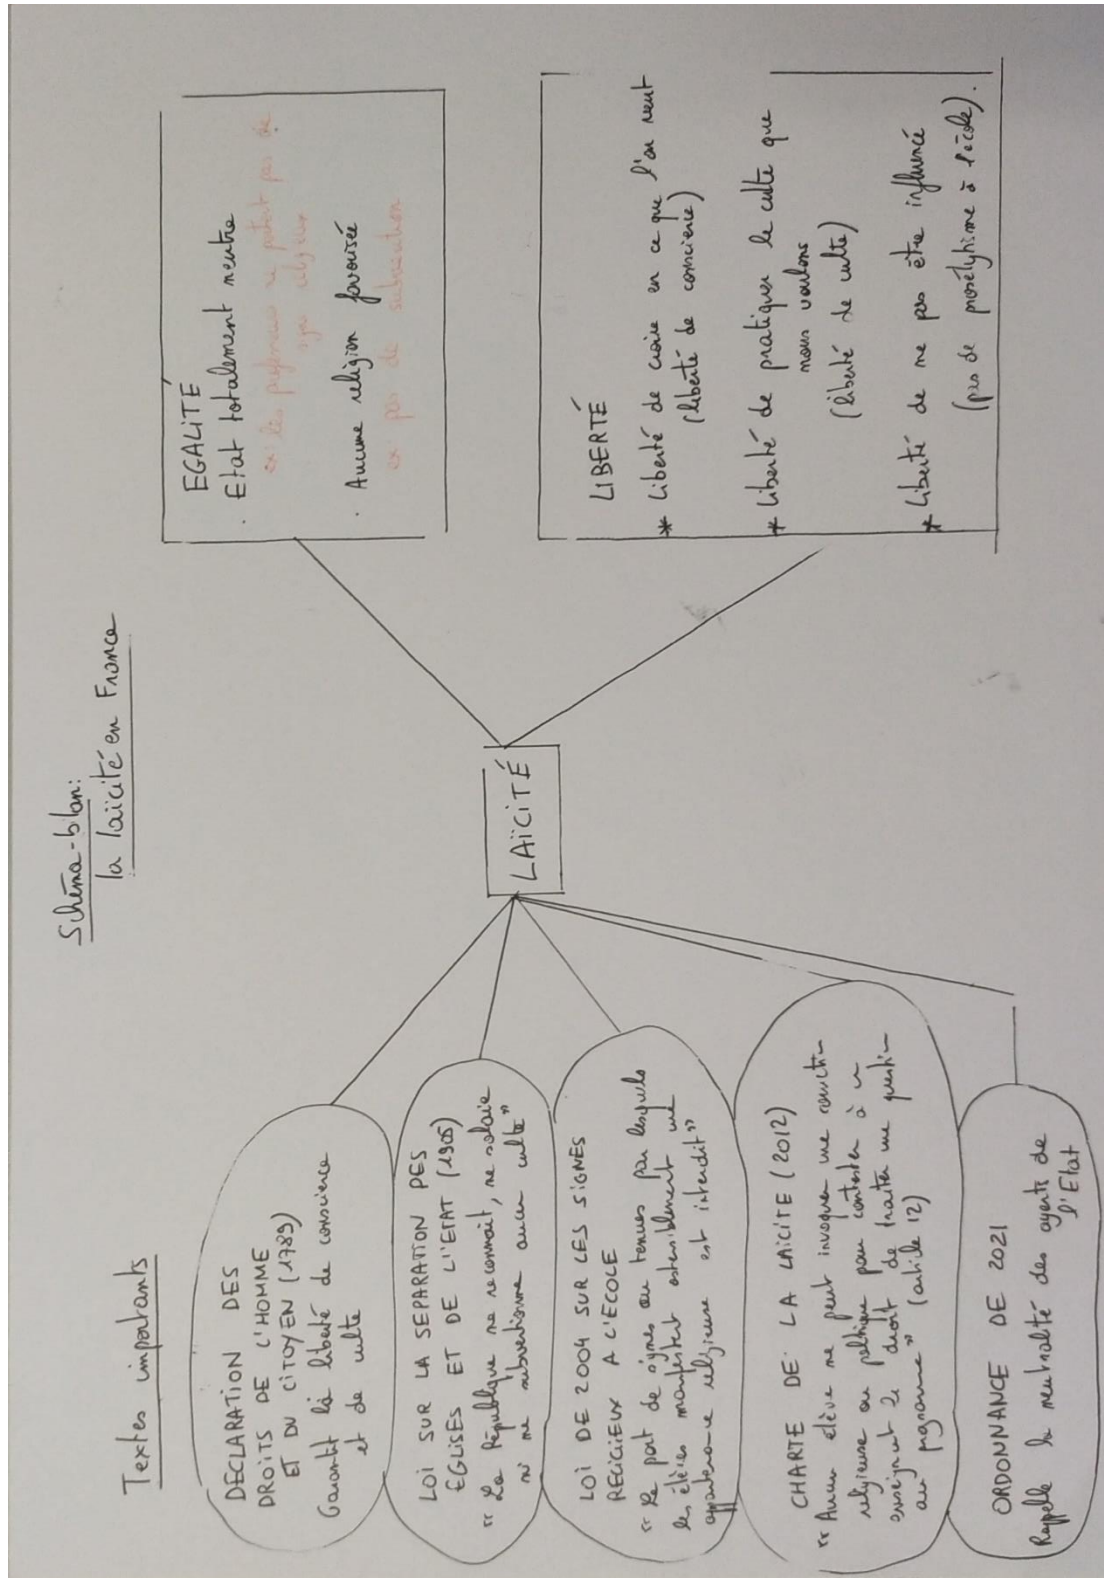 Schéma-bilan:
la laïcité en France
Textes importants
DECLARATION DES
DROITS DE L'HOMME
ET DU CITOYEN (1789)
Garantit la liberté de conscience
et de culte
LOI SUR LA SEPARATION DES
EGLISES ET DE L'ETAT (1905)
"La République ne reconnait, ne salarie
ni ne subventionne aucun culte"
LOI DE 2004 SUR LES SIGNES
RELIGIEUX A L'ECOLE
"Le port de signes ou tenues par lesquels
les élèves manifestent ostensiblement une
appartenance religieuse est interdit"
CHARTE DE LA LAICITE (2012)
"Aucun élève ne peut invoquer une conviction
religieuse ou politique pour contester à un
enseignant le droit de traiter une question
au programme" (article 12)
ORDONNANCE DE 2021
Rappelle la neutralité des agents de
l'Etat
LAÏCITÉ
EGALITÉ
. Etat totalement neutre
ex: les professeurs ne portent pas de
signes religieux
. Aucune religion favorisée
ex: pas de subvention
LIBERTÉ
* Liberté de croire en ce que l'on veut
(liberté de conscience)
* Liberté de pratiquer le culte que
nous voulons
(liberté de culte)
* Liberté de ne pas être influencé
(pas de prosélytisme à l'école).